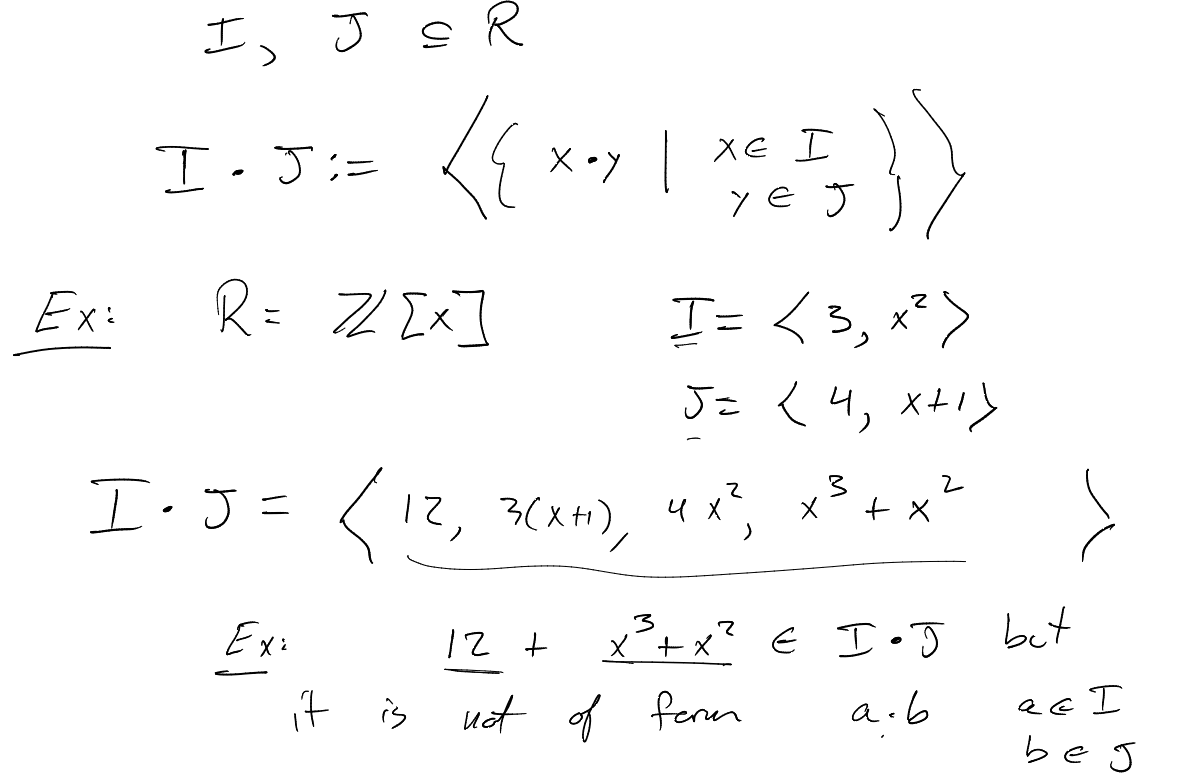 I, J ⊆ R
I · J := ⟨{ x·y | x ∈ I y ∈ J }⟩
Ex: R = ℤ[x] I = ⟨3, x²⟩
J = ⟨4, x+1⟩
I · J = ⟨12, 3(x+1), 4x², x³ + x² ⟩
Ex: 12 + x³+x² ∈ I·J but
it is not of form a·b a ∈ I
b ∈ J